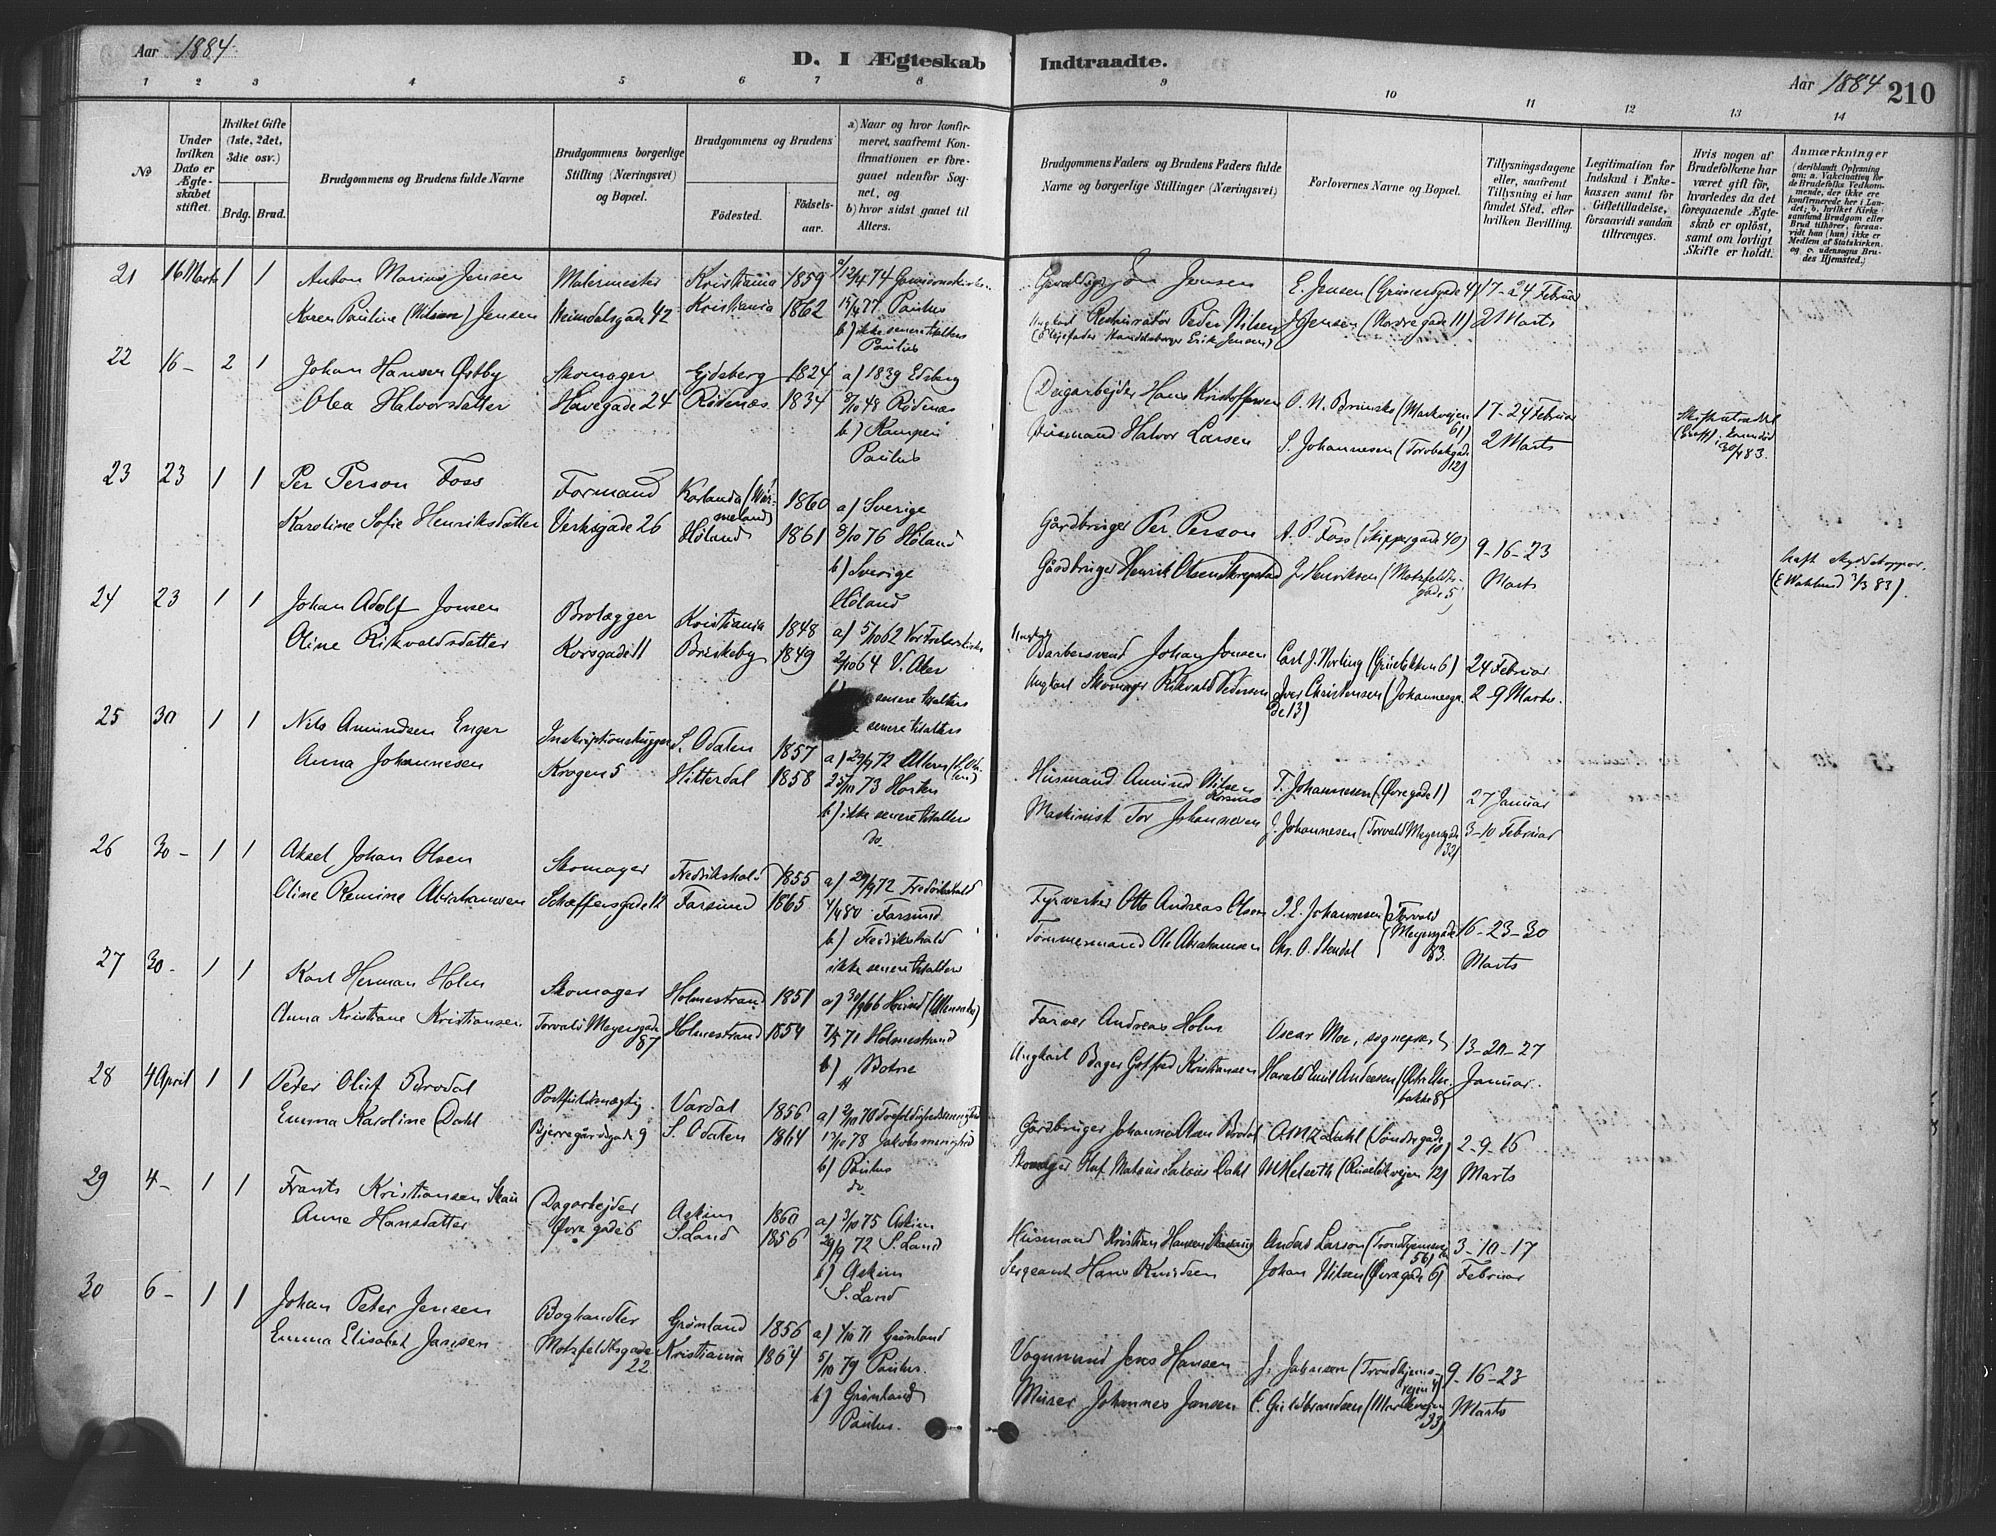 Aar 1884
D. I Ægteskab Indtraadte.
Aar 1884 210
1 2 3 4 5 6 7 8 9 10 11 12 13 14
No
Under hvilken Dato er Ægteskabet stiftet.
Hvilket Gifte (1ste, 2det, 3die osv.)
Brdg. Brud.
Brudgommens og Brudens fulde Navne
Brudgommens borgerlige Stilling (Næringsvei) og Bopæl.
Brudgommens og Brudens
Fødested. Fødselsaar.
a) Naar og hvor konfirmeret, saafremt Konfirmationen er foregaaet udenfor Sognet, og
b) hvor sidst gaaet til Alters.
Brudgommens Faders og Brudens Faders fulde Navne og borgerlige Stillinger (Næringsvei)
Forlovernes Navne og Bopæl.
Tillysningsdagene eller, saafremt Tillysning ei har fundet Sted, efter hvilken Bevilling.
Legitimation for Indskud i Enkekassen samt for Giftetilladelse, forsaavidt saadan tiltrænges.
Hvis nogen af Brudefolkene har været gift før, hvorledes da det foregaaende Ægteskab er opløst, samt om lovligt Skifte er holdt.
Anmærkninger
(deriblandt Oplysning om: a. Vakcination for de Brudefolks Vedkommende, der ikke ere konfirmerede her i Landet; b. hvilket Kirkesamfund Brudgom eller Brud tilhører, forsaavidt han (hun) ikke er Medlem af Statskirken, og c. udensogns Brudes Hjemsted.)
21 16 Marts 1 1 Anton Marius Jensen Malermester Kristiania 1859 12/4 74
Jensen E. Jensen (Grünersgade 4) 17-24 Februar
Karen Pauline (Nilsen) Jensen Heimdalsgade 42 Kristiania 1862 15/4 77 Paulus
Ungkarl Restauratør Peder Nilsen J. Jensen (Nordregade 11) 2 Marts
b) ikke senere tilalters
(Plejefader Handelsborger Erik Jensen)
Paulus
22 16- 2 1 Johan Hansen Østby Skomager Ejdsberg 1824 a) 1839 Edsberg
Dagarbejder Hans Kristoffersen (Markvejen 61) 17-24 Februar
Olea Halvorsdatter Havegade 24 Rødenæs 1834 8/10 48 Rødenæs
Husmand Halvor Larsen S. Johannesen (Torvbakgade 12) 2 Marts
30/4 83.
b) Kampen
Paulus
23 23 1 1 Per Person Foss Formand Karlanda (Värmeland) 1860 a) Sverige
Gårdbruger Per Person A. P. Foss (Skippergade 40) 9-16-23
Karoline Sofie Henriksdatter Verksgade 26 Høland 1861 8/10 76 Høland
Gårdbruger Henrik Olsen J. Henriksen (Motzfeldtsgade 5) Marts
b) Sverige
Høland
24 23 1 1 Johan Adolf Jonsen Brolægger Kristiania 1848 a) 5/10 62 Vor Frelserskirke
Barbersvend Johan Jonsen Carl J. Norling (Grüneløkken 6) 24 Februar
Oline Rikvaldsdatter Korsgade 11 Briskeby 1849 2/10 64 V. Aker
Ungkarl Skomager Rikvald Pedersen Iver Christensen (Johannesgade 13) 2-9 Marts
senere tilalters
senere tilalters
25 30 1 1 Nils Amundsen Enger Inskriptionshugger S. Odalen 1857 a) 29/9 72
Husmand Amund Nilsen T. Johannesen (Øvregade 1) 27 Januar
Anna Johannesen Krogen 5 Hitterdal 1858 25/10 73 Horten
Maskinist Tor Johannesen J. Johannesen (Torvald Meyersgade 32) 3-10 Februar
b) ikke senere tilalters
do
26 30- 1 1 Aksel Johan Olsen Skomager Fredrikshald 1855 a) 29/9 72 Fredrikshald
Fyrverker Otto Andreas Olsen P. E. Johannesen (Torvald Meyersgade 83. 16-23-30
Oline Remine Abrahamsen Scheffersgade 12 Farsund 1865 4/4 80 Farsund
Tømmermand Ole Abrahamsen Chr. O. Stendal Marts
b) Fredrikshald
ikke senere tilalters
27 30- 1 1 Karl Herman Holm Skomager Holmestrand 1851 a) 30/9 66
Farver Andreas Holm Oscar Moe, sogneprest 13-20-27
Anna Kristiane Kristiansen Torvald Meyersgade 87 Holmestrand 1854 7/5 71 Holmestrand
Ungkarl Bager Gotfred Kristiansen Harald Emil Andersen Januar.
b) Botne
28 4 April 1 1 Peter Oluf Brodal Postfuldmægtig Vardal 1856 a) 2/10 70 Trefoldighedsmenighed
Gårdbruger Johannes Olsen Brodal Dahl (Søndregade 10) 2-9-16
Emma Karoline Dahl Bjerregårdsgade 9 S. Odalen 1864 17/10 78 Jakobsmenighed
Skomager Oluf Mateus Dahl M. Helseth (Ruseløkvejen 12) Marts
b) Paulus
do
29 4- 1 1 Frants Kristiansen Skau Dagarbejder Askim 1860 a) 3/10 75 Askim
Husmand Kristian Hansen Anders Larson (Trondhjemsvejen 56) 3-10-17
Anne Hansdatter Øvregade 6 S. Land 1856 29/9 72 S. Land
Sergeant Hans Knudsen Johan Nilsen (Øvregade 6) Februar
b) Askim
S. Land
30 6- 1 1 Johan Peter Jensen Boghandler Grønland 1856 a) 1/10 71 Grønland
Vognmand Jens Hansen J. Johansen (Trondhjemsvejen 4) 9-16-23
Emma Elisabet Jansen Motzfeldtsgade 22 Kristiania 1864 5/10 79 Paulus.
Murer Johannes Jansen E. Guldbrandsen (Markvejen 33) Marts
b) Grønland
Paulus.